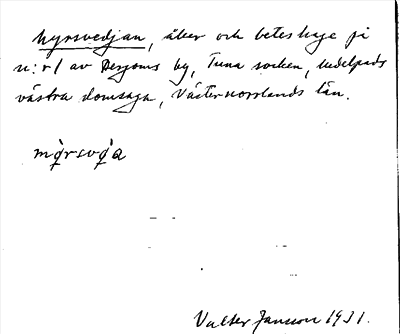 Nyrsvedjan, åker och beteshage på
n:r 1 av          by, Tuna socken, Medelpads
västra domsaga, Västernorrlands län.
Valter Jansson 1931.